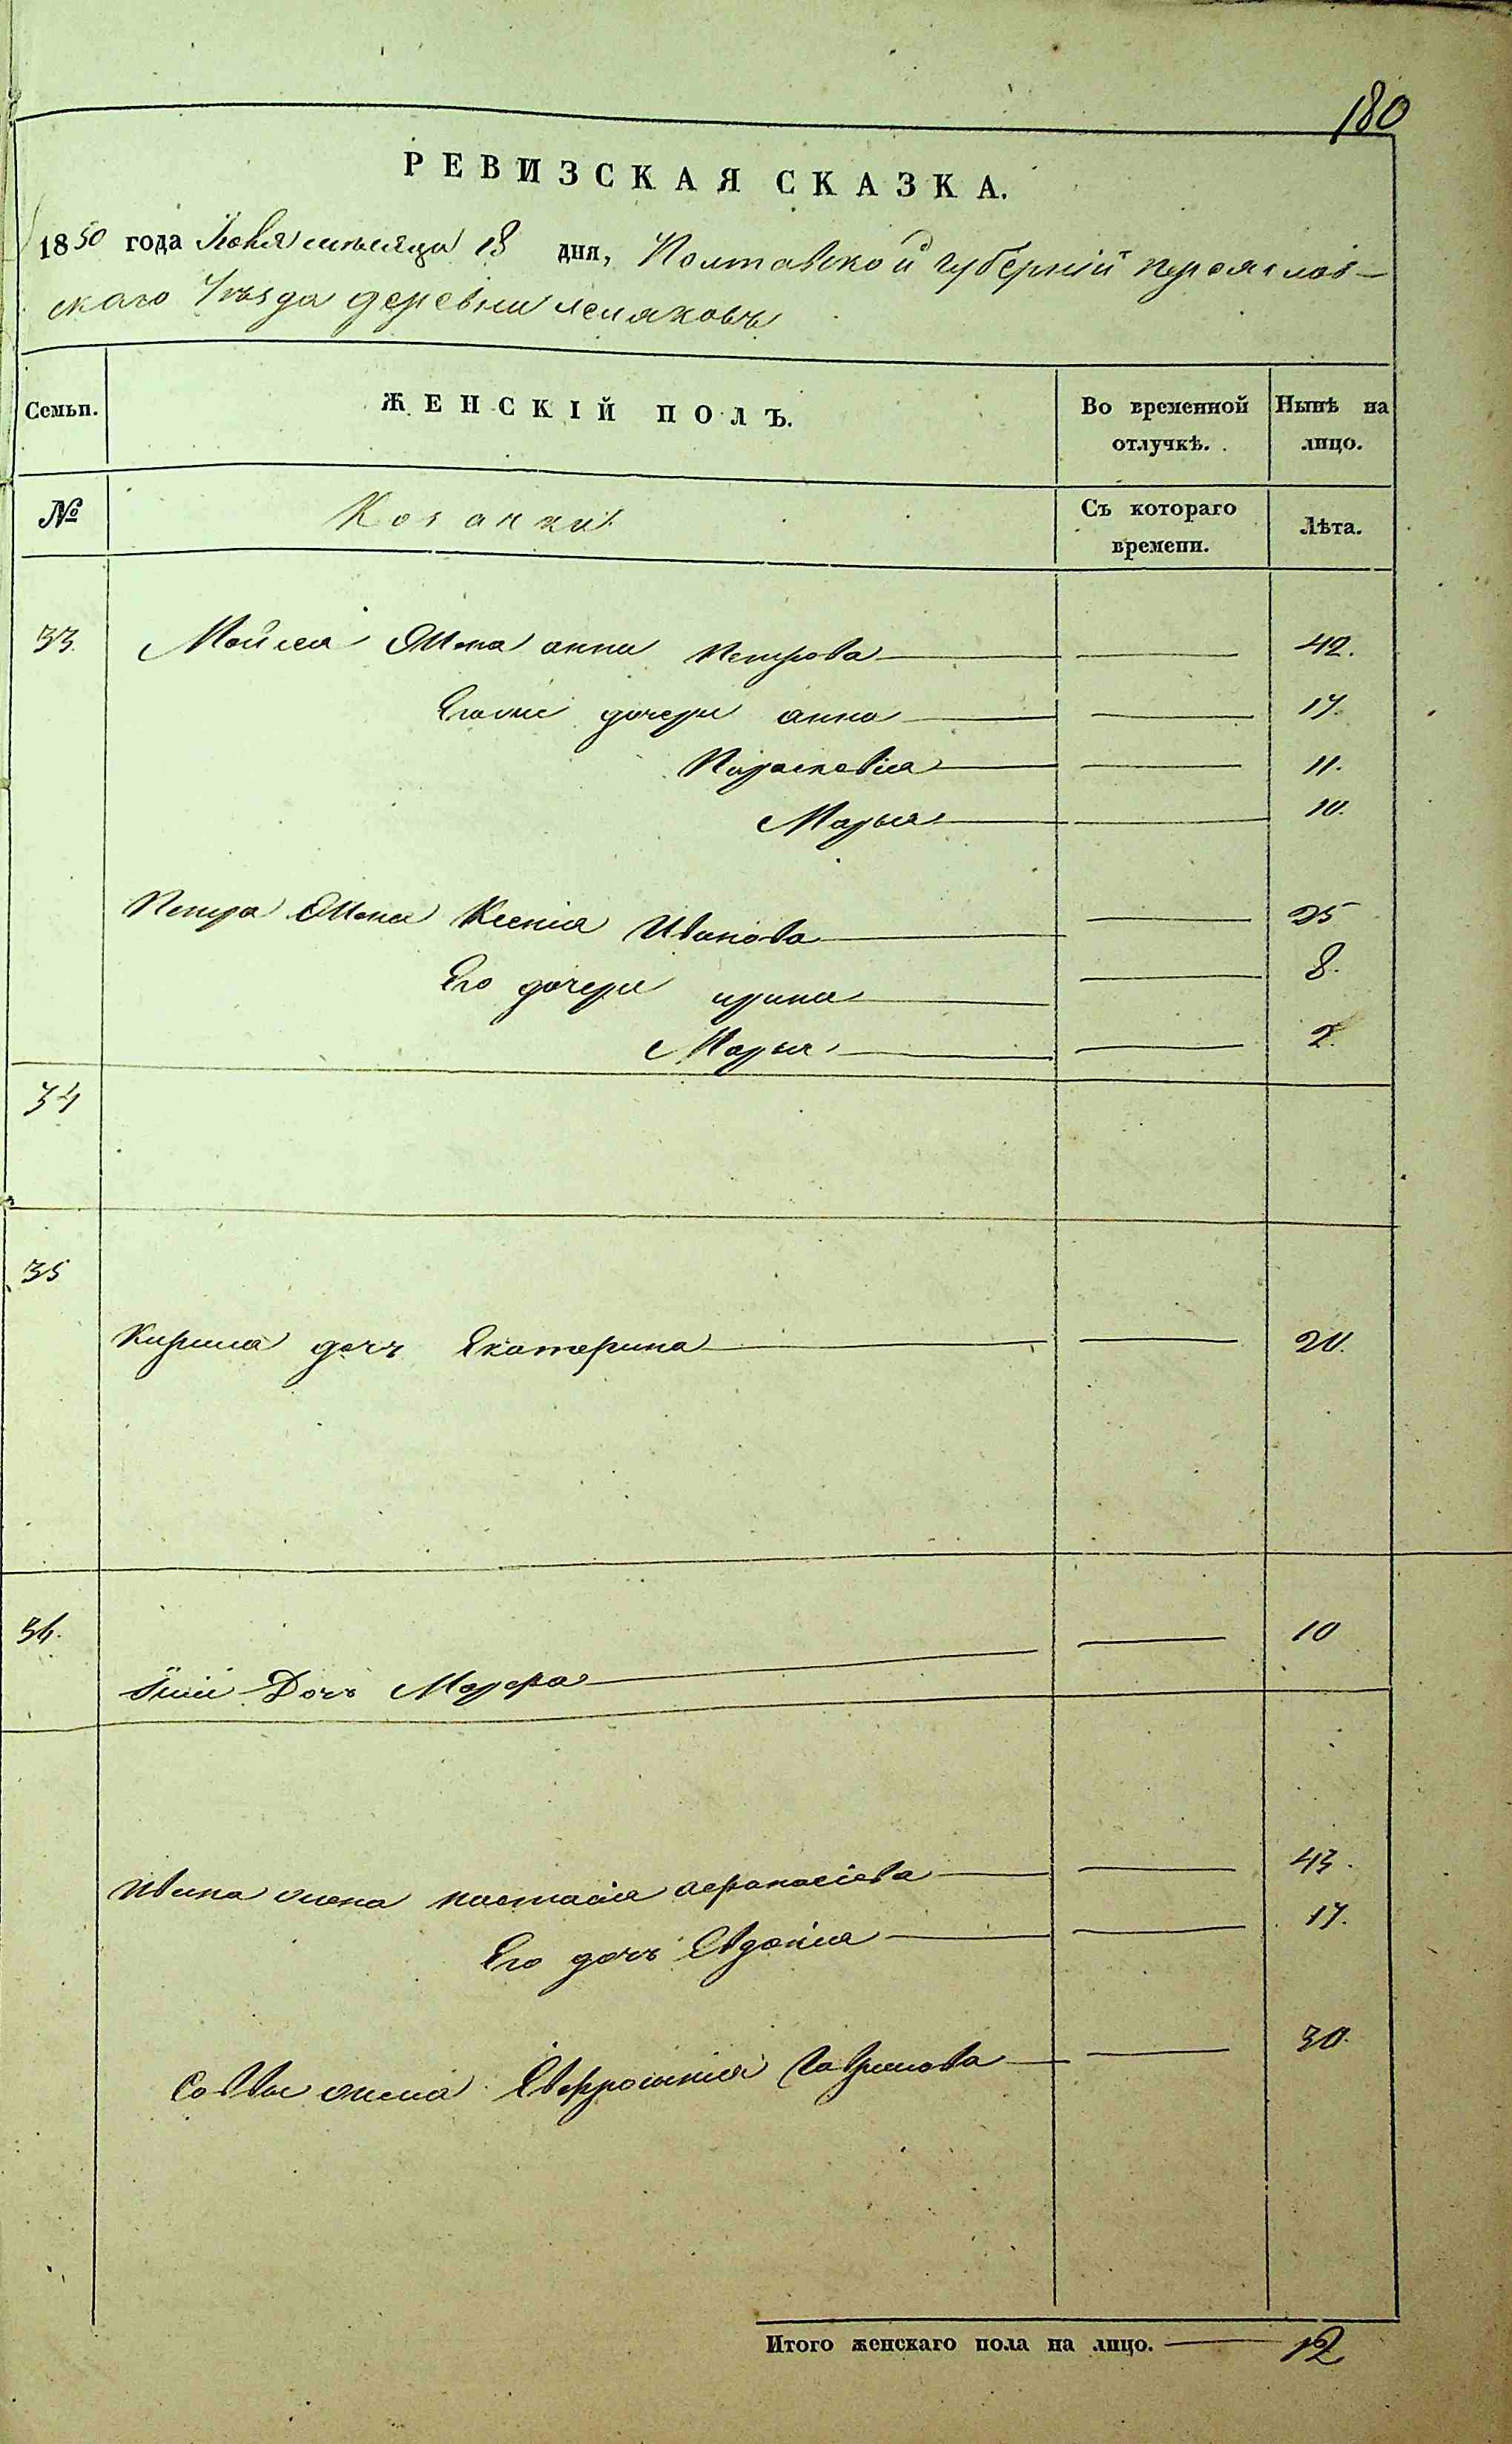 180
РЕВИЗСКАЯ СКАЗКА.
1850 года Іюня месяца 18 дня, Полтавской губерній переяслов-
скаго Уѣзда деревни
Семьи. ЖЕНСКІЙ ПОЛЪ. Во временной отлучкѣ. Нынѣ на лицо.
№ Козачки Съ котораго времени. Лѣта.
33. Мойсея Жена анна Петрова 42.
дочери анна 17.
Параскевія 11.
Марья 10.
Петра Жена Ксенія Иванова 25
Его дочери ирина 8.
Марья 2.
34
35
Кирила дочь Екатерина 20.
36. Дочь Марфа 10
Ивана жена настасія афанасіева 43.
Его дочь Евдокія 17.
Саввы жена Евфросинія Гаврилова 30.
Итого женскаго пола на лицо. 12